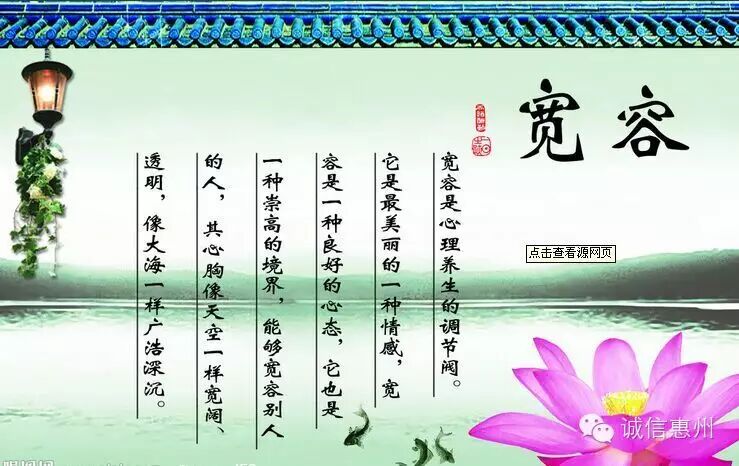 宽容
宽容是心理养生的调节阀。
它是最美丽的一种情感，宽
容是一种良好的心态，它也是
一种崇高的境界，能够宽容别人
的人，其心胸像天空一样宽阔、
透明，像大海一样广浩深沉。
点击查看源网页
诚信惠州